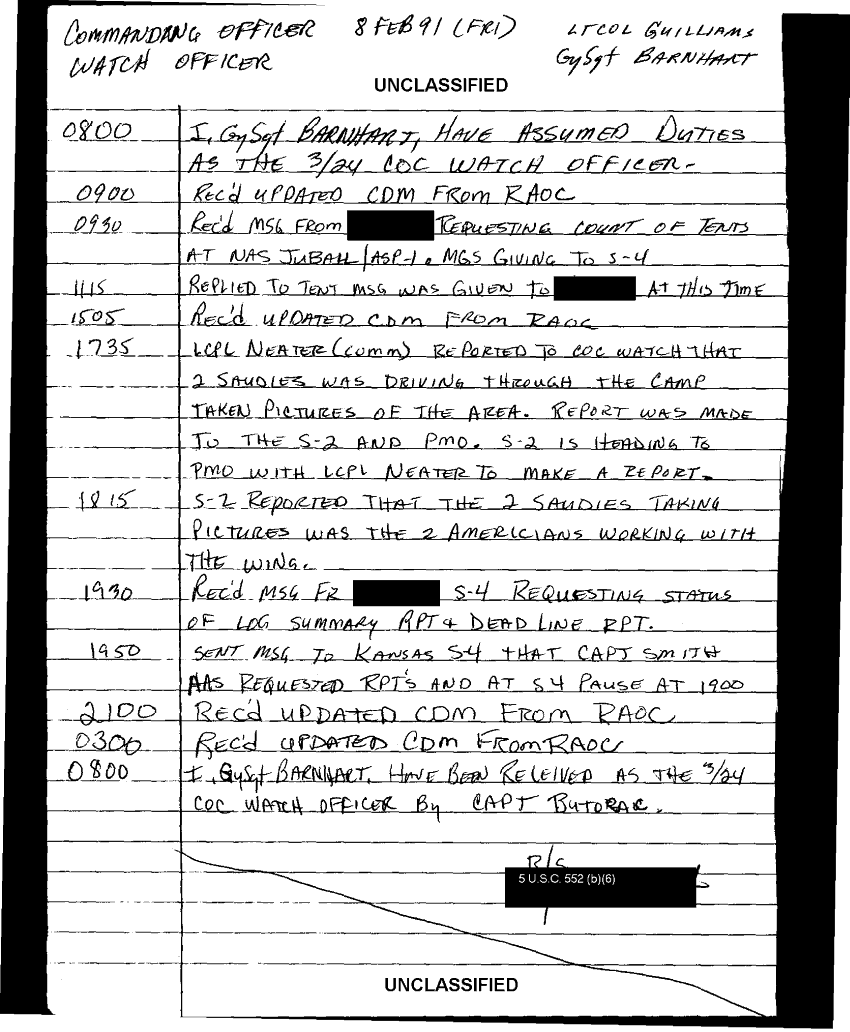 COMMANDING OFFICER 8 FEB 91 (FRI) LTCOL GUILLIAMS
WATCH OFFICER GySgt BARNHART
UNCLASSIFIED
0800 I, GySgt BARNHART, HAVE ASSUMED DUTIES
AS THE 3/24 COC WATCH OFFICER-
0900 REC'd UPDATED CDM FROM RAOC
0930 REC'd MSG FROM REQUESTING COUNT OF TENTS
AT NAS JUBALL/ASP-1. MGS GIVING TO S-4
1115 REPLIED TO TENT MSG WAS GIVEN TO AT THIS TIME
1505 REC'd UPDATED CDM FROM RAOC
1735 LCPL NEATER (COMM) REPORTED TO COC WATCH THAT
2 SAUDIES WAS DRIVING THROUGH THE CAMP
TAKEN PICTURES OF THE AREA. REPORT WAS MADE
TO THE S-2 AND PMO. S-2 IS HEADING TO
PMO WITH LCPL NEATER TO MAKE A REPORT.
1815 S-2 REPORTED THAT THE 2 SAUDIES TAKING
PICTURES WAS THE 2 AMERICIANS WORKING WITH
THE WING.
1930 REC'd MSG FR S-4 REQUESTING STATUS
OF LOG SUMMARY RPT & DEAD LINE RPT.
1950 SENT MSG TO KANSAS S4 THAT CAPT SMITH
HAS REQUESTED RPT'S AND AT S4 PAUSE AT 1900
2100 REC'd UPDATED CDM FROM RAOC
0300 REC'd UPDATED CDM FROM RAOC
0800 I, GySgt BARNHART, HAVE BEEN RELEIVED AS THE 3/24
COC WATCH OFFICER By CAPT BUTORAC.
R/S
5 U.S.C. 552 (b)(6)
UNCLASSIFIED